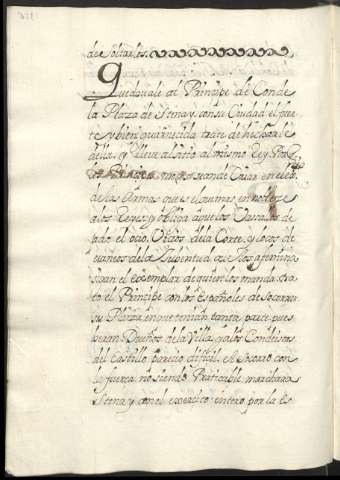 de soltarles.
Quedavale al Principe de Conde
la Plaza de Stenay, con su Ciudad el fuer
te, y bien guarnecida trate de hecharle
della, y lleve al sitio al mismo Rey
de las Armas que es el
a los Reyes, y obliga a que los Vasallos de
jado el ocio, Vicios de la Corte, y locos de
vaneos de la Juventud que los afemina
sigan el exemplar de quien los manda: tra
to el Principe con los Españoles de Socorrer
su Plaza, en que tenian tanta parte pues
heran Dueños de la Villa, y a los Condeistas
del Castillo parecio dificil, el Socorro con
la fuerza no siendo Praticable, marchar a
Stenay con el exercito entero, por la es